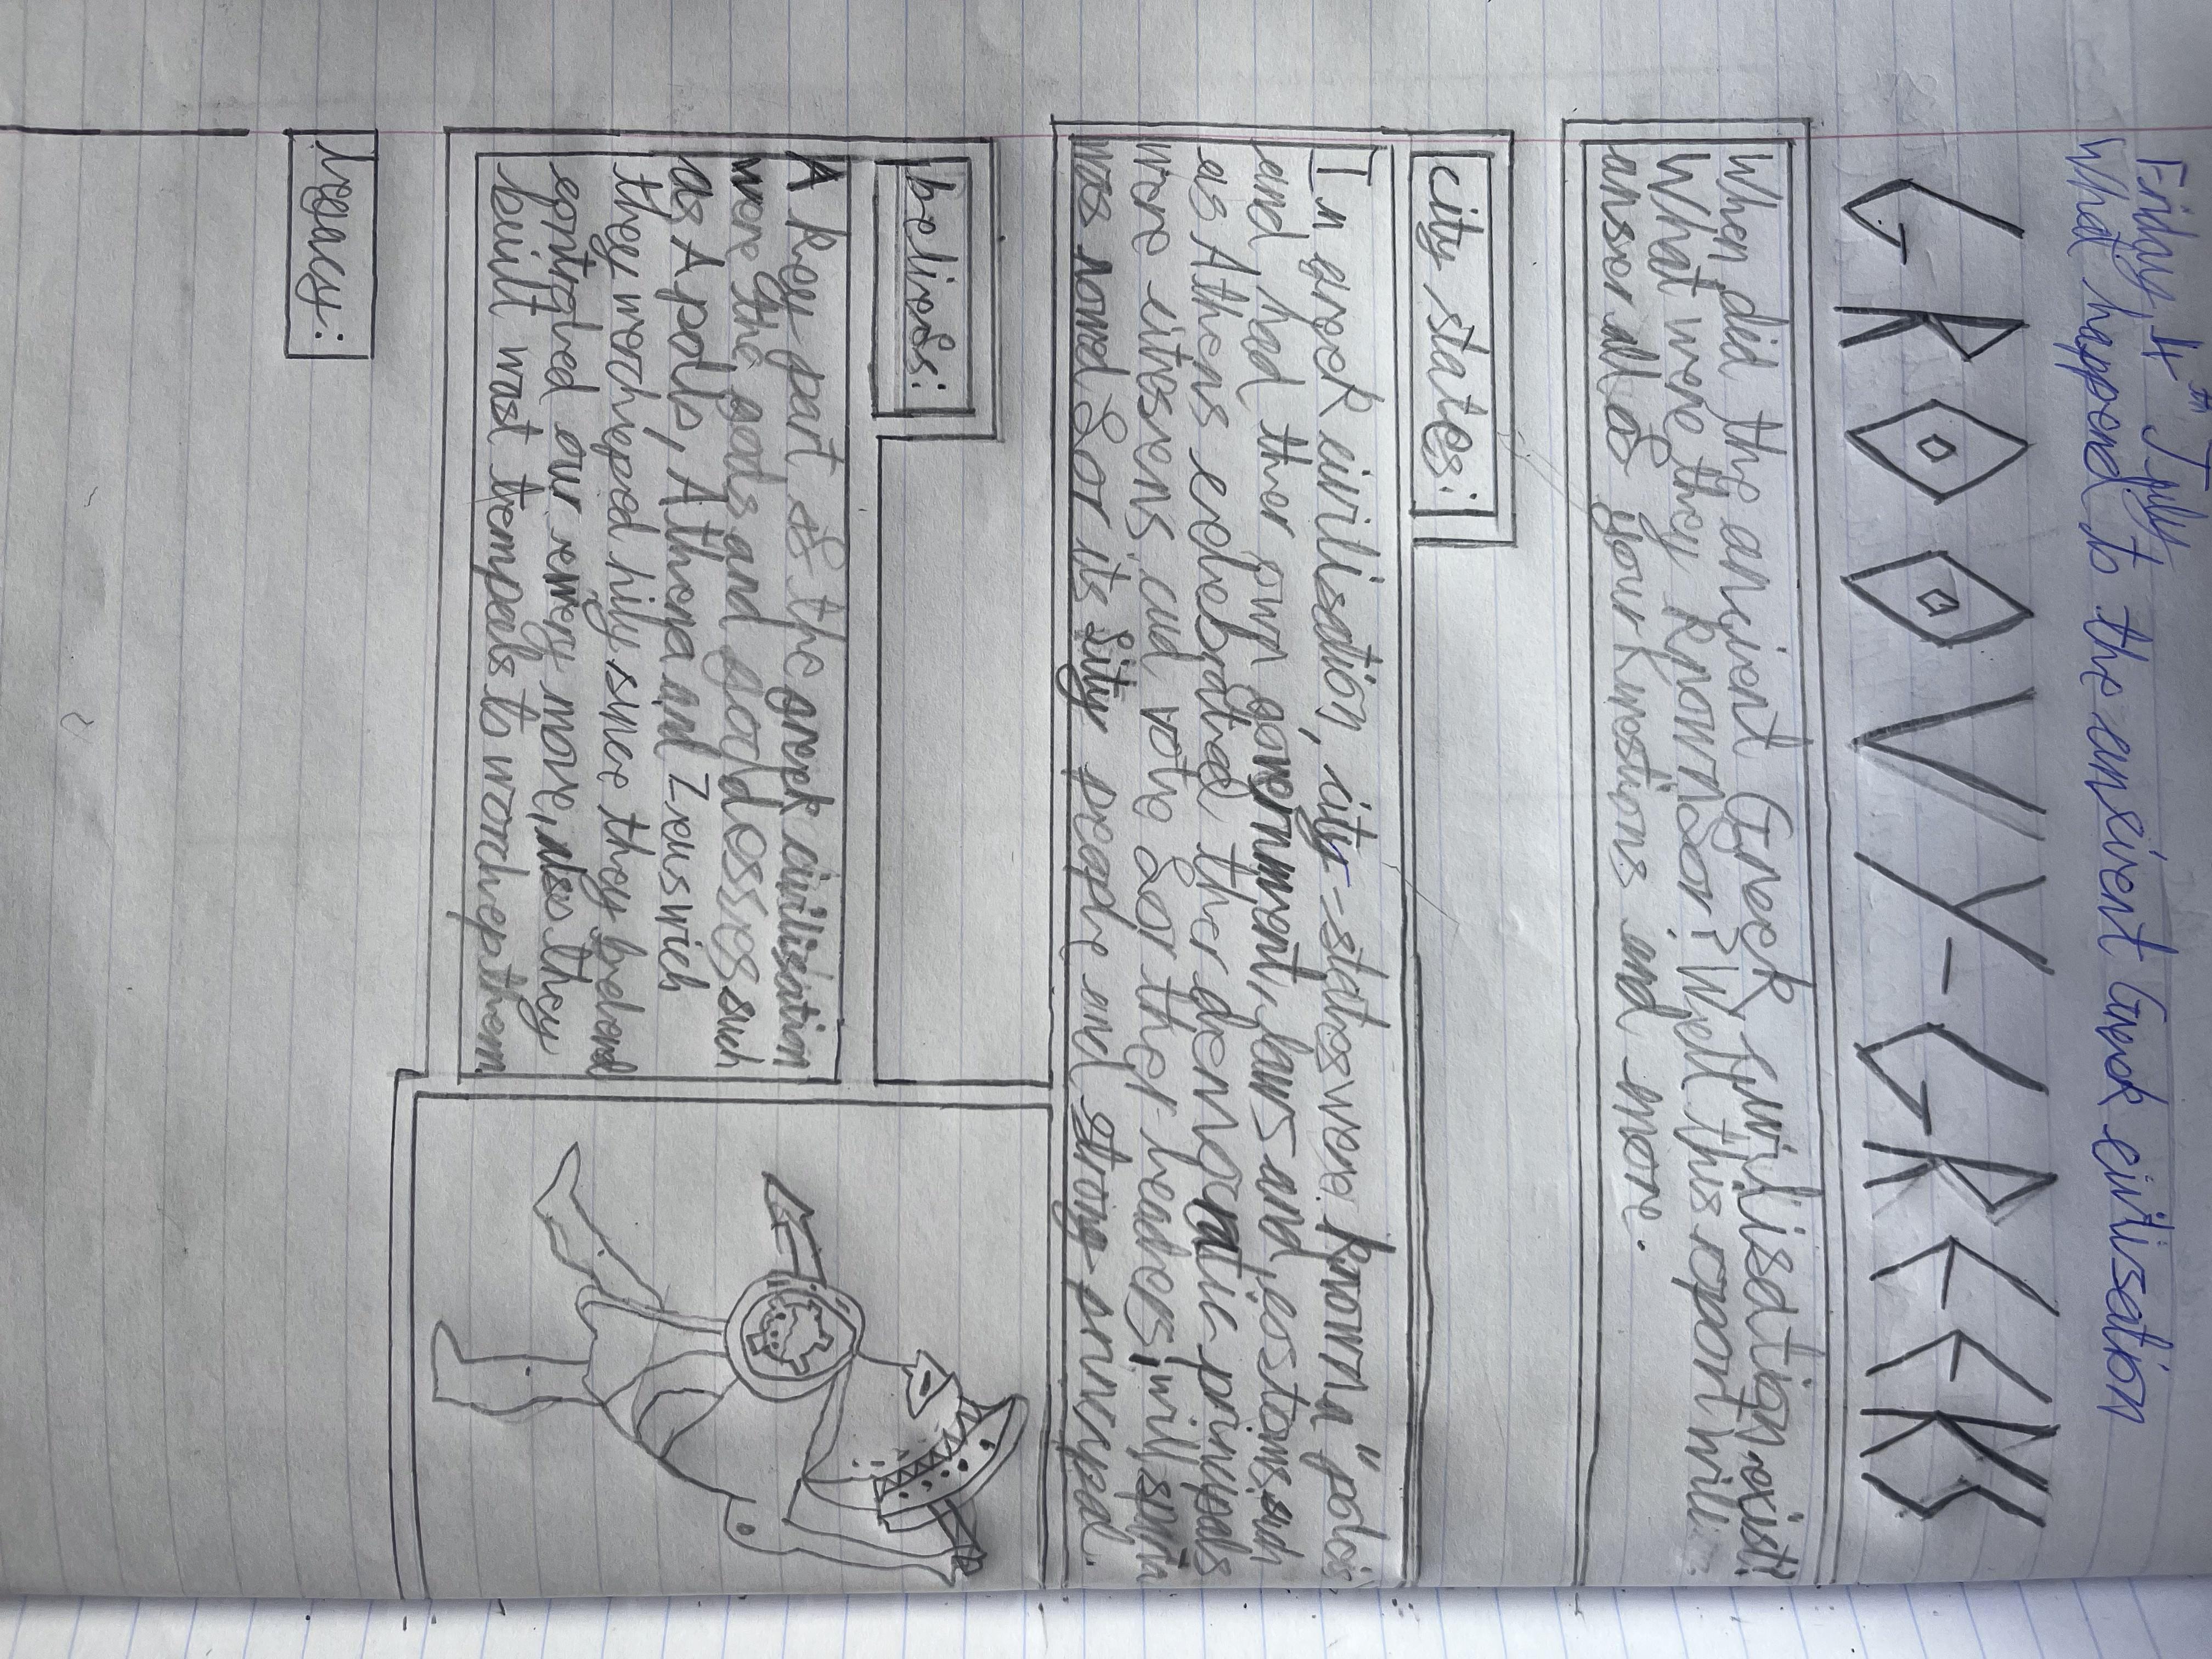 Friday, 4th July
What happened to the ansivent Greek civilisation
GROOVY-GREEKS
When did the anvient Greek civilisation exist?
What were they known for? Well this report will
anser all of your Kuestions and more.
city states:
In greek civilisation, city-states were known a "polis"
and had ther own government, laws and, costoms. such
as Athens celebrated ther democratic princepals
were citesens cud vote for ther leaders, will sparta
was noned for its fity people and strong princepd.
beliefs:
A key part of the greek civilisation
were the gods and goddesses such
as Apollo, Athena and Zeus wich
they worcheped hily since they beleved
controled our every move, also they
built vast tempels to worchep them
legacy: